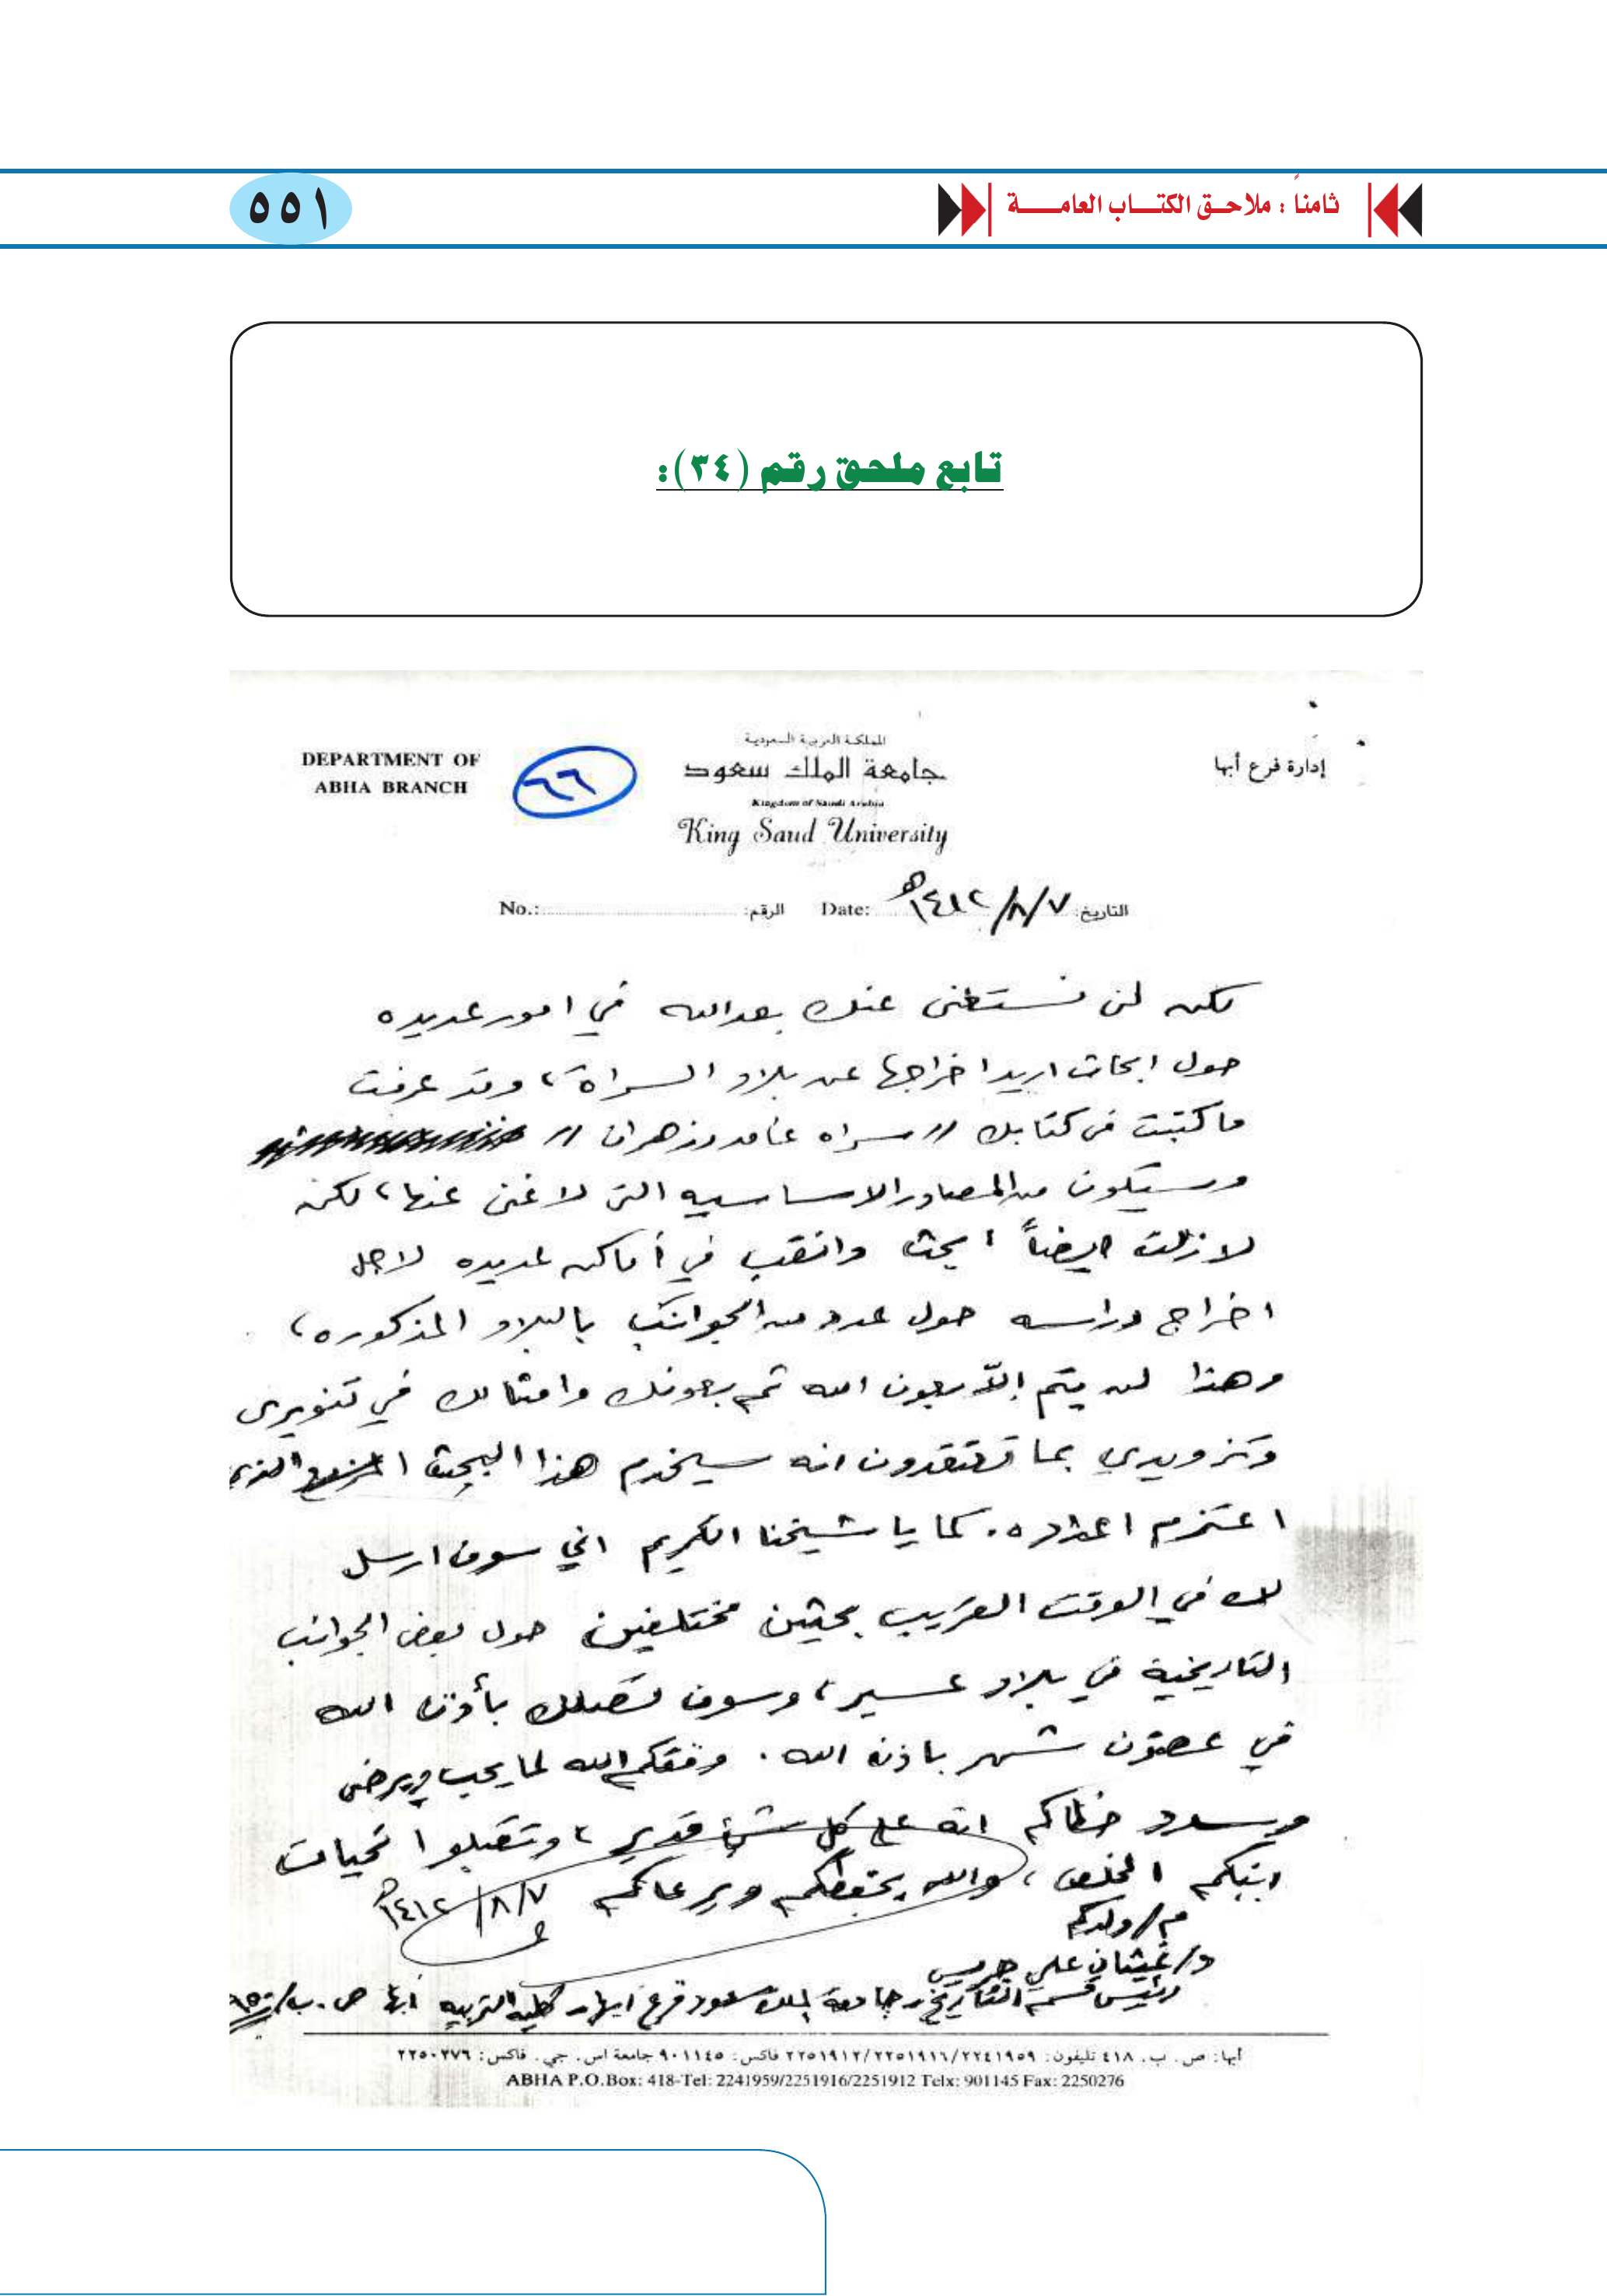 ثامناً : ملاحـق الكتـــاب العامـــــة
٥٥١
تابع ملحق رقم (٣٤):
المملكة العربية السعودية
إدارة فرع أبها
جامعة الملك سعود
DEPARTMENT OF
ABHA BRANCH
٦٦
Kingdom of Saudi Arabia
King Saud University
التاريخ: ١٤١٢/٨/٧هـ Date: الرقم: No.:
لكن لن نستغنى عنك بعد الله في امور عديده
حول ابحاث اريد اخراجها عن بلاد السراة، وقد عرفت
ما كتبت في كتابك "سراه غامد وزهران"
وستكون من المصادر الاساسيه التي لا غنى عنها، لكن
لا زلت ايضاً ابحث وانقب في أماكن عديده لاجل
اخراج دراسه حول عدد من الجوانب بالبلاد المذكوره،
وهذا لن يتم إلاّ بعون الله ثم بعونك وامثالك في تنويري
وتزويدي بما تعتقدون انه سيخدم هذا البحث الذي
اعتزم اعداده. كما يا شيخنا الكريم اني سوف ارسل
لك في الوقت القريب بحثين مختلفين حول بعض الجوانب
التاريخية في بلاد عسير، وسوف تصلك بأذن الله
في غضون شهر باذن الله. وفقكم الله لما يحب ويرضى
وسدد خطاكم انه على كل شئ قدير، وتقبلوا تحيات
ابنكم المخلص، والله يحفظكم ويرعاكم ١٤١٢/٨/٧هـ
م/ولدكم
د/غيثان علي جريس
رئيس قسم التاريخ - جامعة الملك سعود فرع ابها - كلية التربيه ابها ص.ب/
أبها: ص. ب. ٤١٨ تليفون: ٢٢٤١٩٥٩/٢٢٥١٩١٦/٢٢٥١٩١٢ فاكس: ٩٠١١٤٥ جامعة اس. جي. فاكس: ٢٢٥٠٢٧٦
ABHA P.O.Box: 418-Tel: 2241959/2251916/2251912 Telx: 901145 Fax: 2250276